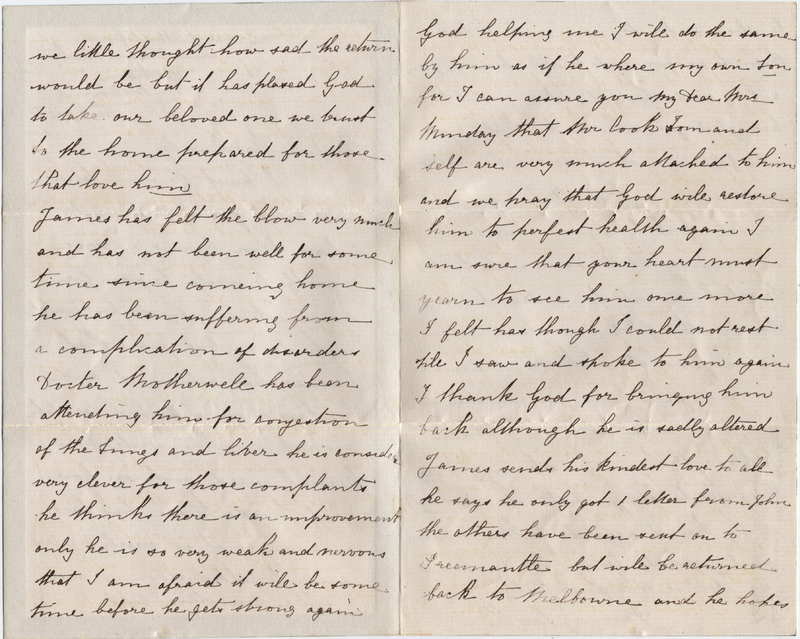 we little thought how sad the return
would be but it has plased God
to take our beloved one we trust
to the home prepared for those
that love him
James has felt the blow very much
and has not been well for some
time since comeing home
he has been suffering from
a complication of disorders
Docter Motherwell has been
attending him for congestion
of the Lungs and liver he is consider
very clever for those complants
he thinks there is an improvement
only he is so very weak and nervous
that I am afraid it will be some
time before he gets strong again
God helping me I will do the same
by him as if he where my own Son
for I can assure you my Dear Mrs
Munday that Mr Cook Tom and
self are very much attached to him
and we pray that God will restore
him to perfest health again I
am sure that your heart must
yearn to see him one more
I felt has though I could not rest
till I saw and spoke to him again
I thank God for bringing him
back although he is sadly altered
James sends his kindest love to all
he says he only got 1 letter from John
the others have been sent on to
Freemantle but will be returned
back to Melbourne and he hopes